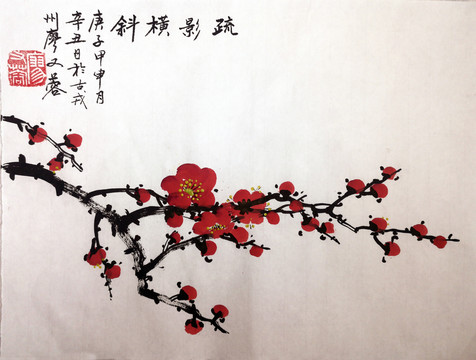 疏影横斜
庚子甲申月
辛丑日於古戎
州廖又蓉